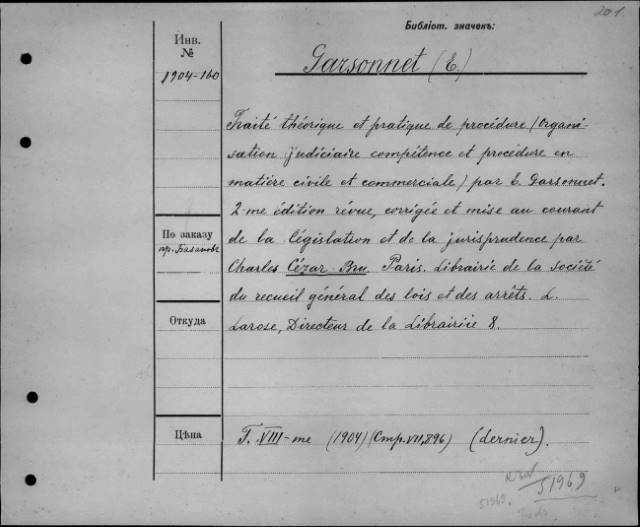 201
Библіот. значекъ:
Инв.
№
1904-160
Garsonnet (E.)
Traité théorique et pratique de procédure (Organi-
sation judiciaire compétence et procédure en
matière civile et commerciale) par E. Garsonnet.
2-me édition révue, corrigée et mise au courant
de la législation et de la jurisprudence par
Charles Cézar-Bru. Paris. Librairie de la société
du recueil général des lois et des arrêts. L.
Larose, Directeur de la Librairie 8.
По заказу
пр. Базановъ
Откуда
Цѣна
T. VIII-me (1904) (Стр. VII, 896) (dernier).
51969
51969.